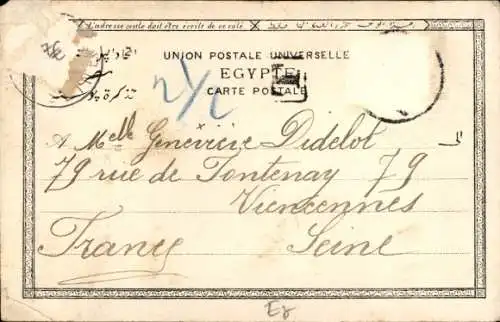 L'adresse seule doit être écrite de ce côté.
UNION POSTALE UNIVERSELLE
EGYPTE
CARTE POSTALE
تذكرة
A Melle Geneviève Didelot
79 rue de Fontenay 79
Viencennes
France Seine